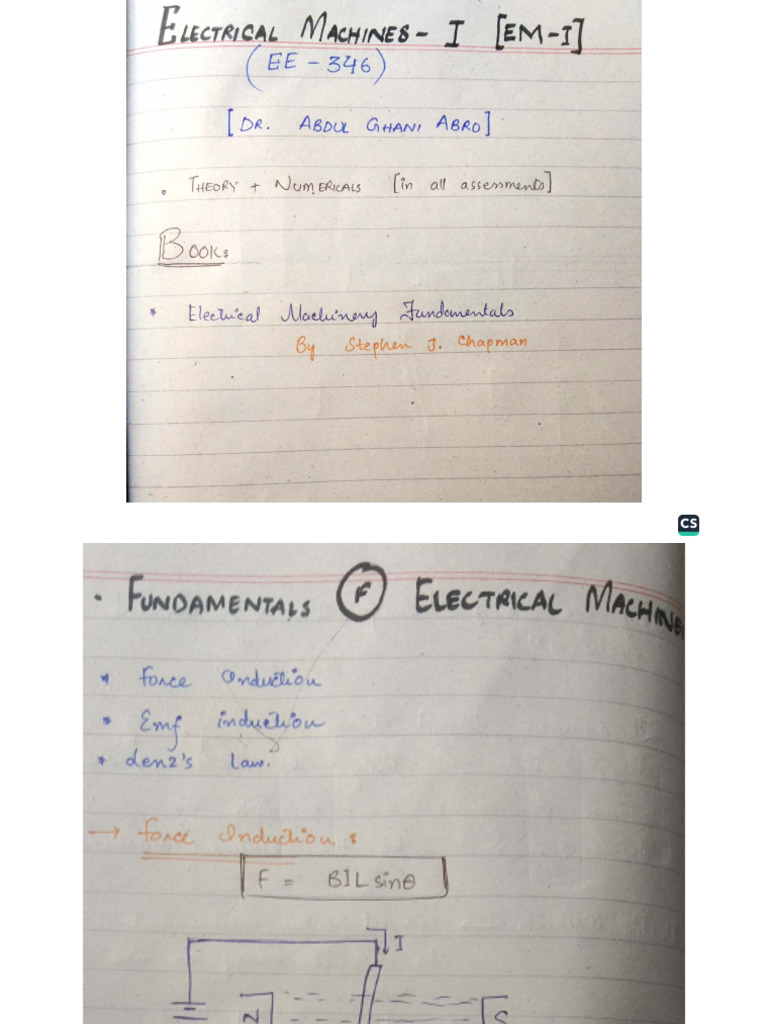 ELECTRICAL MACHINES - I [EM-I]
(EE - 346)
[DR. ABDUL GHANI ABRO]
• THEORY + NUMERICALS [in all assessments]
BOOKs
* Electrical Machinery Fundamentals
By Stephen J. Chapman
CS
• FUNDAMENTALS F ELECTRICAL MACHINE
* force Induction
* Emf induction
* Lenz's Law.
→ force Induction :
F = BIL sinθ
I
N S